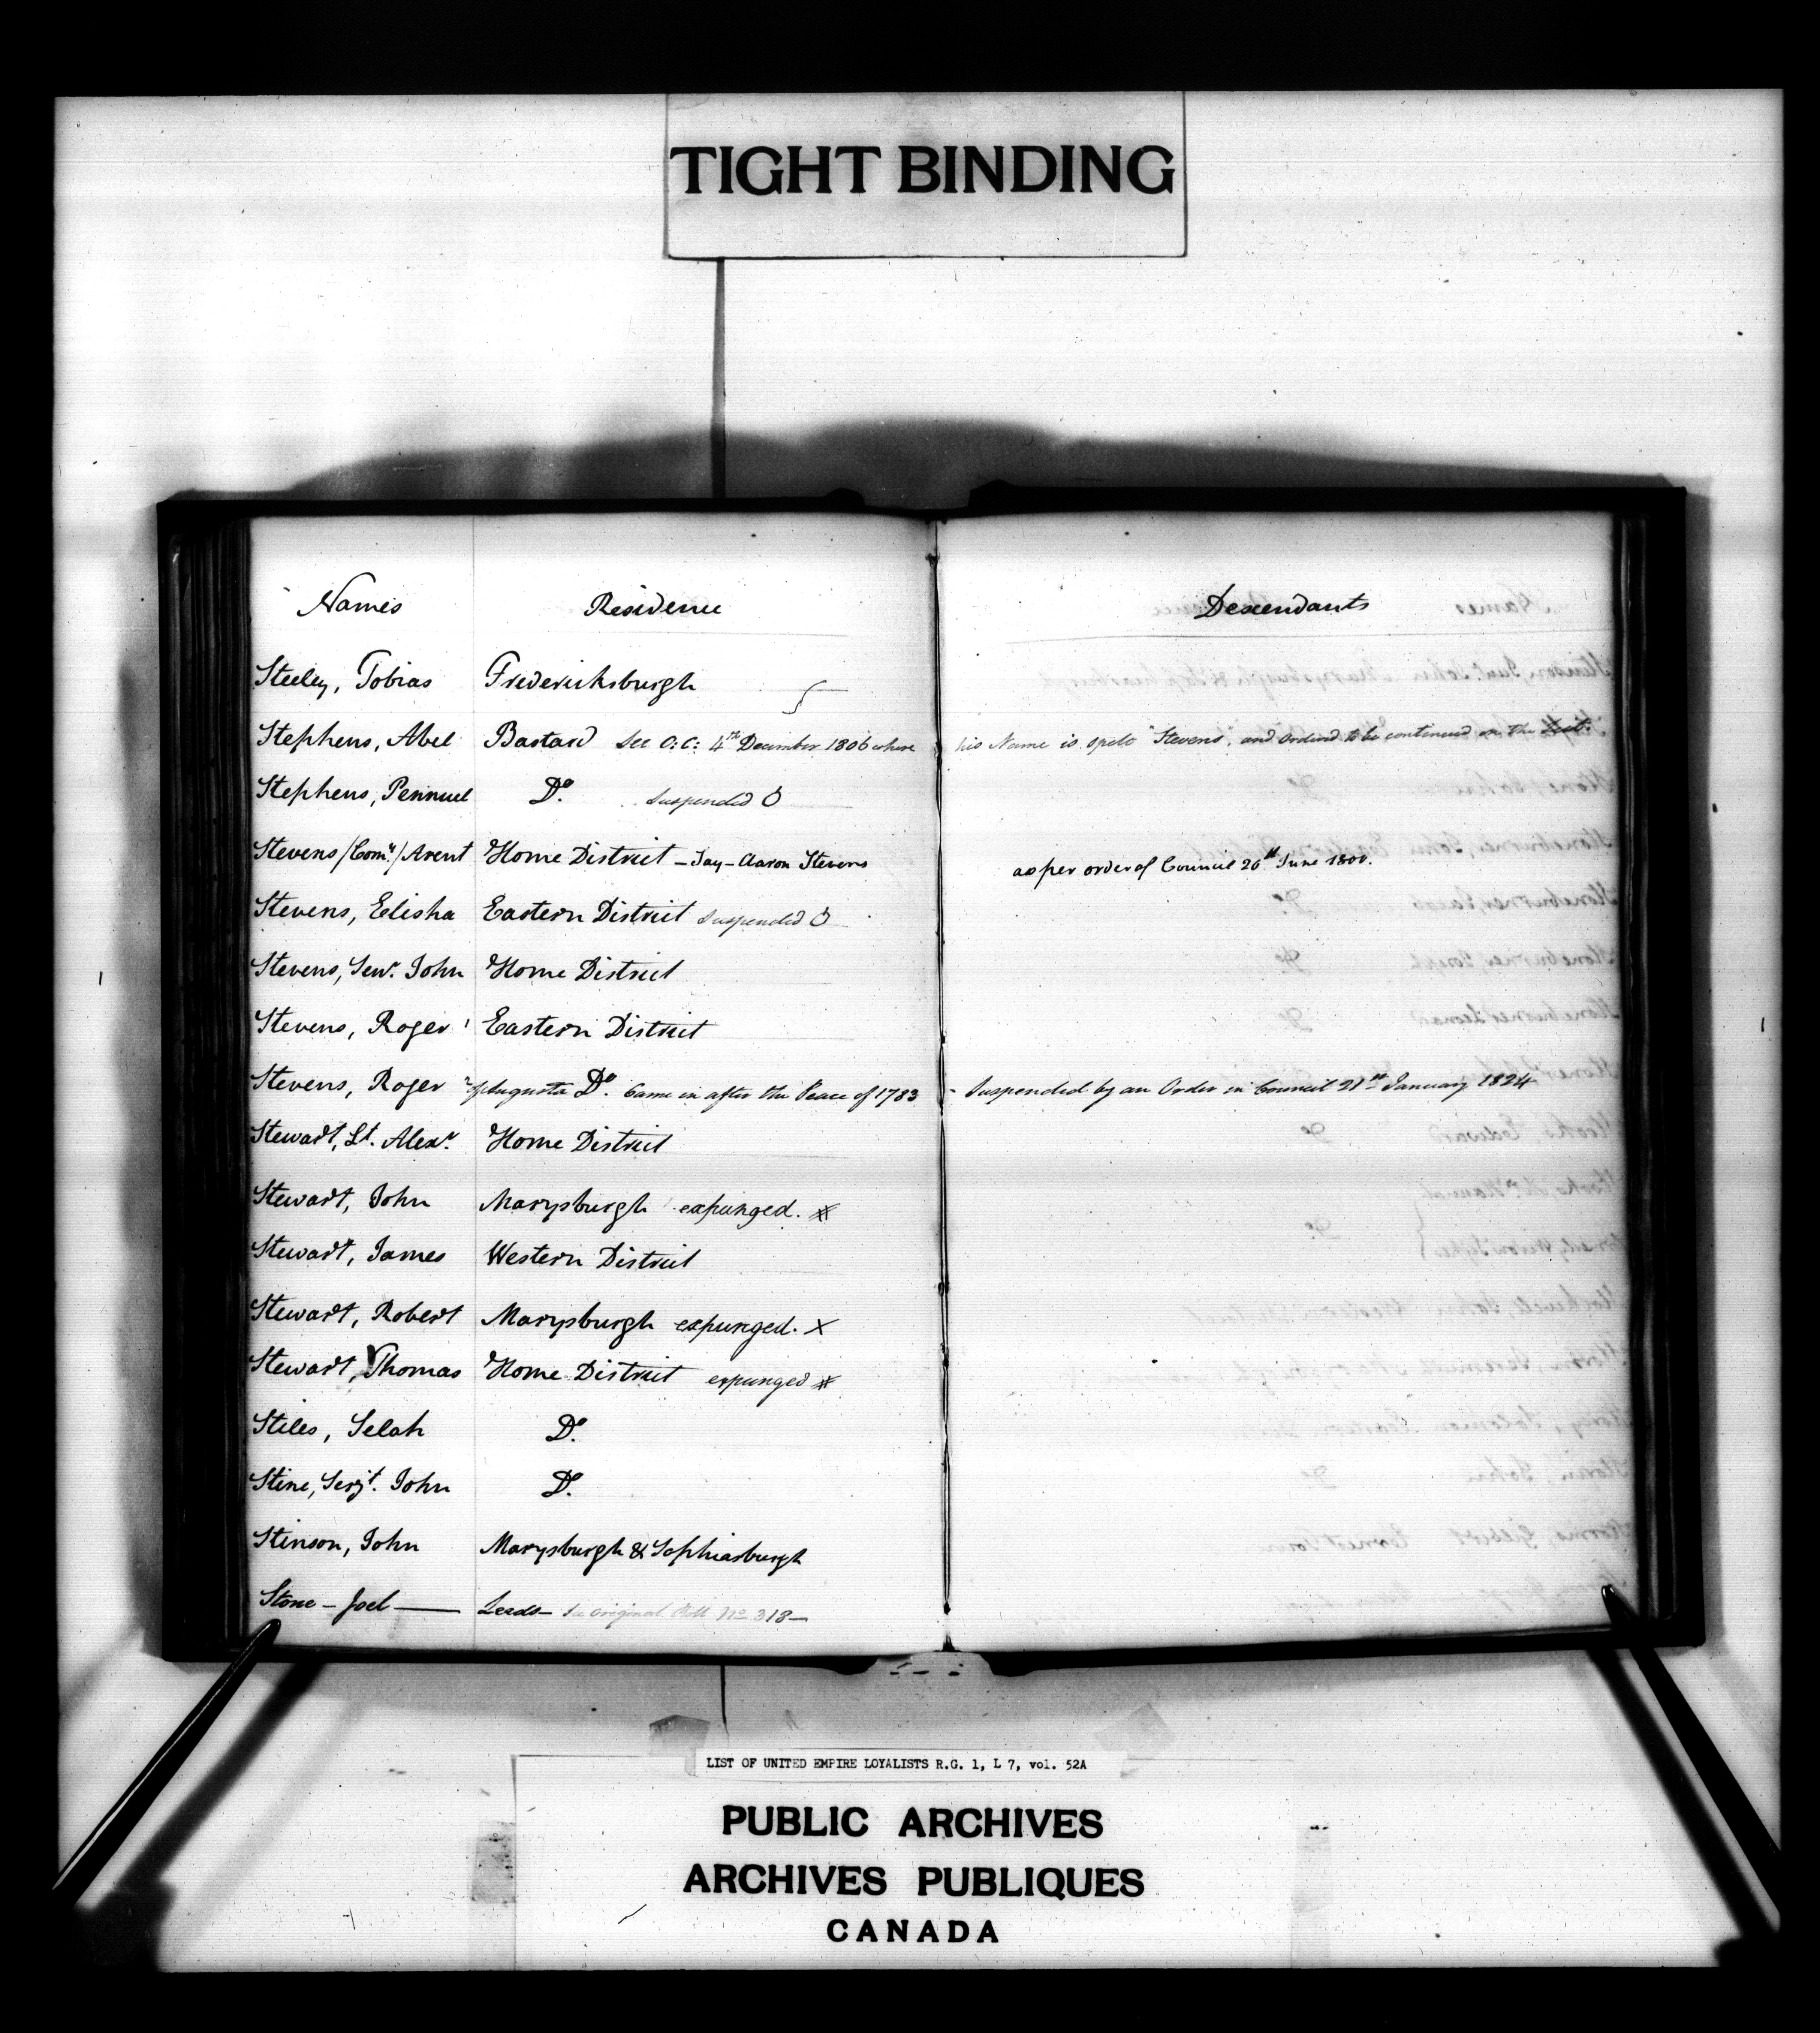 TIGHT BINDING
Names Residence Descendants
Steeley, Tobias Fredericksburgh
Stephens, Abel Bastard See O: C: 4th December 1806 where his Name is spelt "Stevens", and ordered to be continued on the List.
Stephens, Pennuel Do. Suspended
Stevens /Comy./ Arent Home District – Say – Aaron Stevens as per order of Council 26th June 1800.
Stevens, Elisha Eastern District Suspended
Stevens, Senr. John Home District
Stevens, Roger 1 Eastern District
Stevens, Roger 2 of Augusta Do. Came in after the Peace of 1783 – Suspended by an Order in Council 21st January 1824
Stewart, Lt. Alexr. Home District
Stewart, John Marysburgh expunged. #
Stewart, James Western District
Stewart, Robert Marysburgh expunged. X
Stewart, Thomas Home District expunged #
Stiles, Selah Do.
Stine, Serjt. John Do.
Stinson, John Marysburgh & Sophiasburgh
Stone – Joel — Leeds – See original Roll No. 318 –
LIST OF UNITED EMPIRE LOYALISTS R.G. 1, L 7, vol. 52A
PUBLIC ARCHIVES
ARCHIVES PUBLIQUES
CANADA